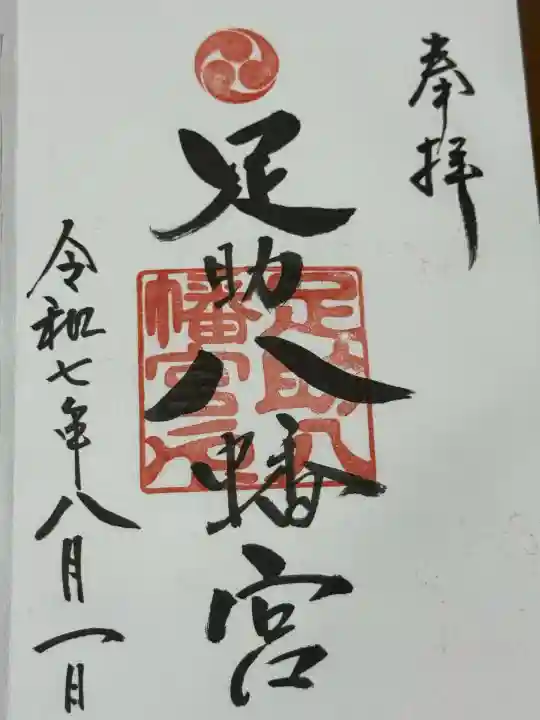 奉拝
足助八幡宮
足助八
幡宮之
令和七年八月一日